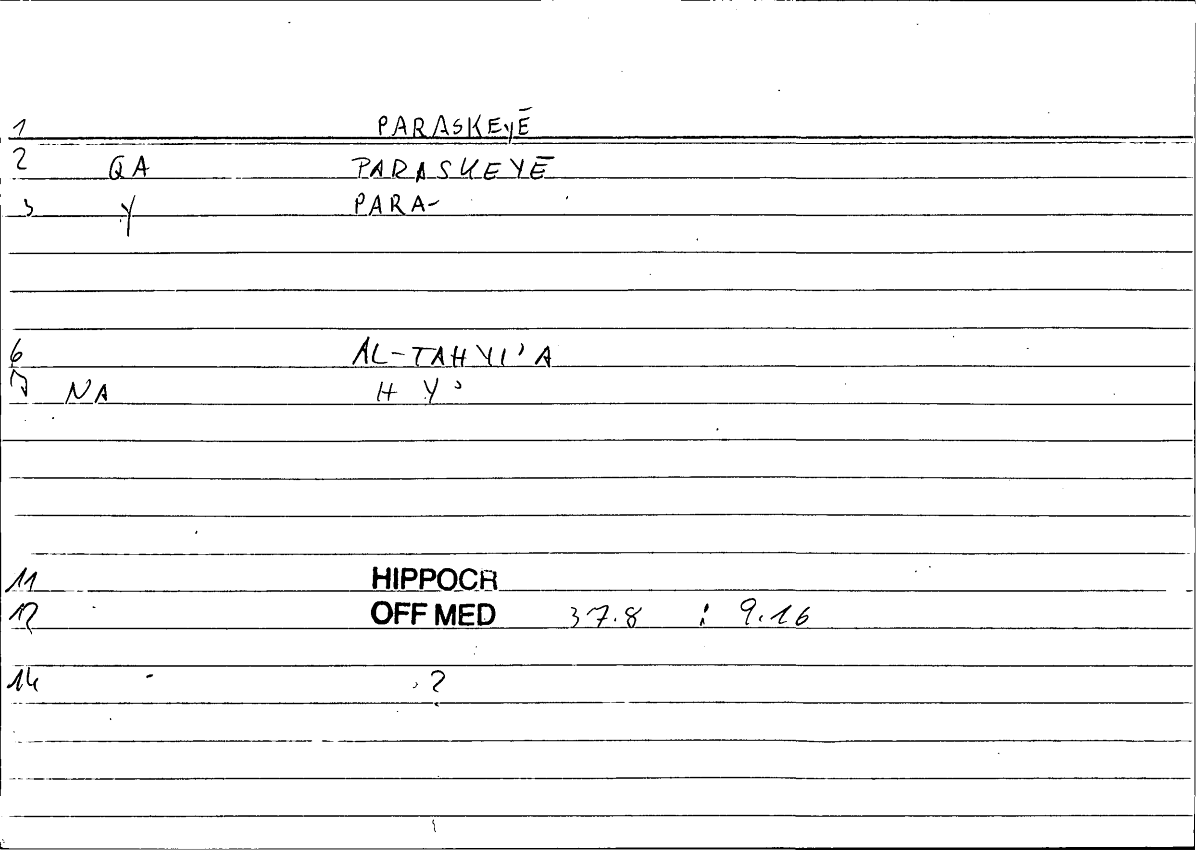 1 PARASKEYĒ
2 QA PARASKEYĒ
3 Y PARA-
6 AL-TAHYI'A
7 NA H Y '
11 HIPPOCR
12 OFF MED 37.8 : 9.16
14 - ?